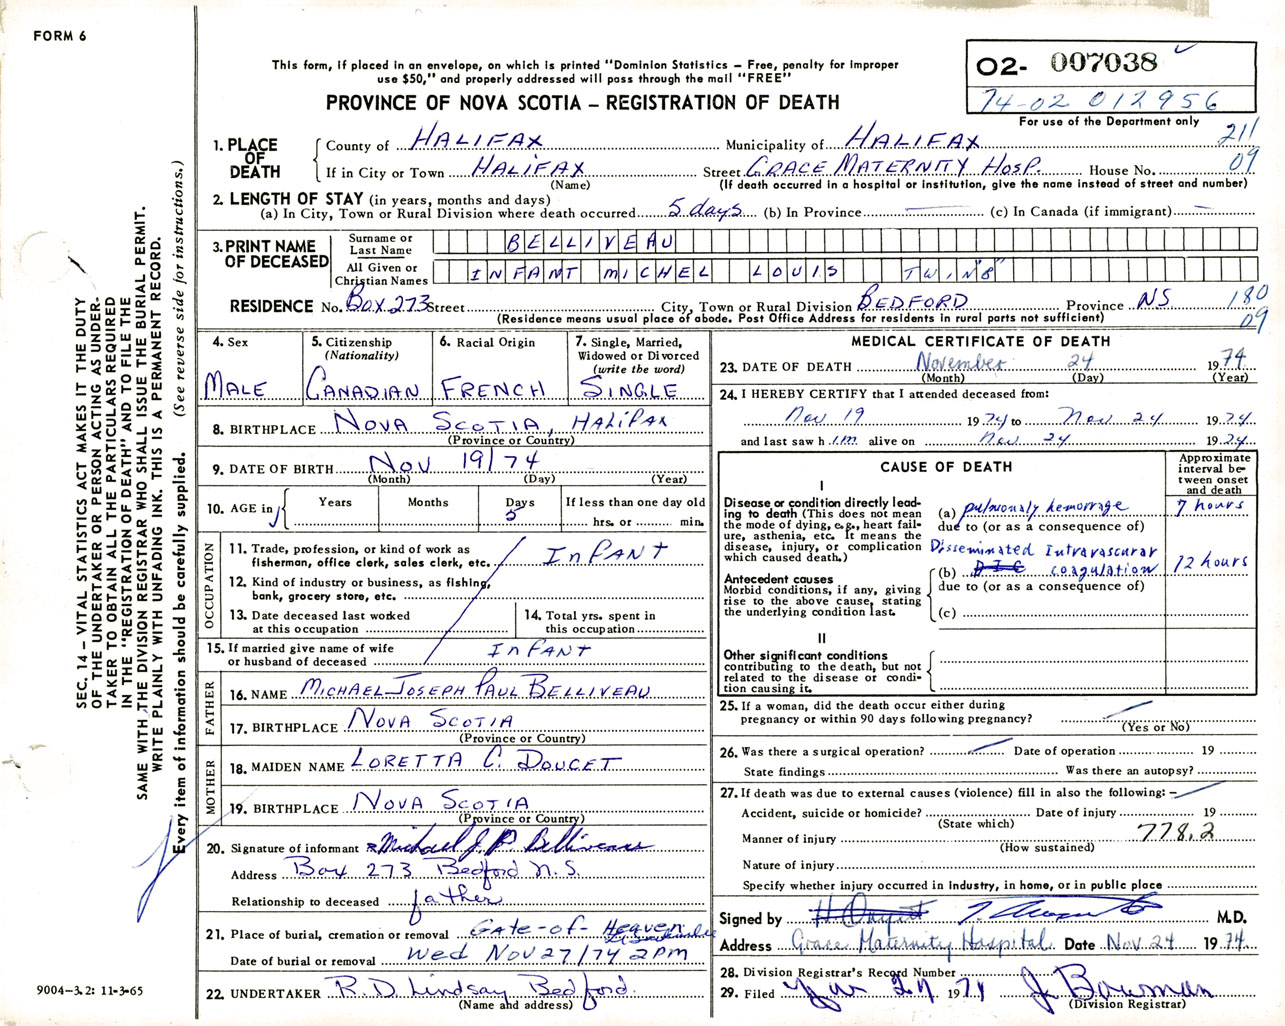 FORM 6
This form, if placed in an envelope, on which is printed "Dominion Statistics – Free, penalty for improper
use $50," and properly addressed will pass through the mail "FREE"
PROVINCE OF NOVA SCOTIA – REGISTRATION OF DEATH
O2- 007038
74-02 012956
For use of the Department only
1. PLACE OF DEATH
County of HALIFAX Municipality of HALIFAX 211
If in City or Town HALIFAX Street GRACE MATERNITY HOSP. House No. 09
(Name) (If death occurred in a hospital or institution, give the name instead of street and number)
2. LENGTH OF STAY (in years, months and days)
(a) In City, Town or Rural Division where death occurred 5 days (b) In Province (c) In Canada (if immigrant)
3. PRINT NAME OF DECEASED
Surname or Last Name BELLIVEAU
All Given or Christian Names INFANT MICHEL LOUIS TWIN "B"
RESIDENCE No. Box 273 Street City, Town or Rural Division BEDFORD Province NS 180
(Residence means usual place of abode. Post Office Address for residents in rural parts not sufficient) 09
4. Sex MALE
5. Citizenship (Nationality) CANADIAN
6. Racial Origin FRENCH
7. Single, Married, Widowed or Divorced (write the word) SINGLE
8. BIRTHPLACE NOVA SCOTIA, HALIFAX
(Province or Country)
9. DATE OF BIRTH Nov 19/74
(Month) (Day) (Year)
10. AGE in Years Months Days 5 If less than one day old hrs. or min.
OCCUPATION
11. Trade, profession, or kind of work as
fisherman, office clerk, sales clerk, etc. INFANT
12. Kind of industry or business, as fishing,
bank, grocery store, etc.
13. Date deceased last worked
at this occupation
14. Total yrs. spent in
this occupation
15. If married give name of wife
or husband of deceased INFANT
FATHER
16. NAME MICHAEL JOSEPH PAUL BELLIVEAU
17. BIRTHPLACE NOVA SCOTIA
(Province or Country)
MOTHER
18. MAIDEN NAME LORETTA C. DOUCET
19. BIRTHPLACE NOVA SCOTIA
(Province or Country)
20. Signature of informant Michael J. P Belliveau
Address Box 273 Bedford N.S.
Relationship to deceased father
21. Place of burial, cremation or removal GATE-OF-Heaven
Date of burial or removal Wed Nov 27/74 2 PM
22. UNDERTAKER R.D. Lindsay Bedford.
(Name and address)
MEDICAL CERTIFICATE OF DEATH
23. DATE OF DEATH November 24 1974
(Month) (Day) (Year)
24. I HEREBY CERTIFY that I attended deceased from:
Nov 19 1974 to Nov 24 1974
and last saw him alive on Nov 24 1974
CAUSE OF DEATH
Approximate interval between onset and death
I
Disease or condition directly lead-
ing to death (This does not mean
the mode of dying, e.g., heart fail-
ure, asthenia, etc. It means the
disease, injury, or complication
which caused death.)
(a) pulmonary hemorrage 7 hours
due to (or as a consequence of)
Disseminated Intravascular
(b) DIC coagulation 12 hours
due to (or as a consequence of)
(c)
Antecedent causes
Morbid conditions, if any, giving
rise to the above cause, stating
the underlying condition last.
II
Other significant conditions
contributing to the death, but not
related to the disease or condi-
tion causing it.
25. If a woman, did the death occur either during
pregnancy or within 90 days following pregnancy?
(Yes or No)
26. Was there a surgical operation? Date of operation 19
State findings Was there an autopsy?
27. If death was due to external causes (violence) fill in also the following: –
Accident, suicide or homicide? Date of injury 19
(State which)
Manner of injury 778.2
(How sustained)
Nature of injury
Specify whether injury occurred in industry, in home, or in public place
Signed by M.D.
Address Grace Maternity Hospital Date Nov 24 1974
28. Division Registrar's Record Number
29. Filed 27 1974 J. Bowman
(Division Registrar)
SEC. 14 – VITAL STATISTICS ACT MAKES IT THE DUTY
OF THE UNDERTAKER OR PERSON ACTING AS UNDER-
TAKER TO OBTAIN ALL THE PARTICULARS REQUIRED
IN THE "REGISTRATION OF DEATH" AND TO FILE THE
SAME WITH THE DIVISION REGISTRAR WHO SHALL ISSUE THE BURIAL PERMIT.
WRITE PLAINLY WITH UNFADING INK. THIS IS A PERMANENT RECORD.
Every item of information should be carefully supplied. (See reverse side for instructions.)
9004-3.2: 11-3-65